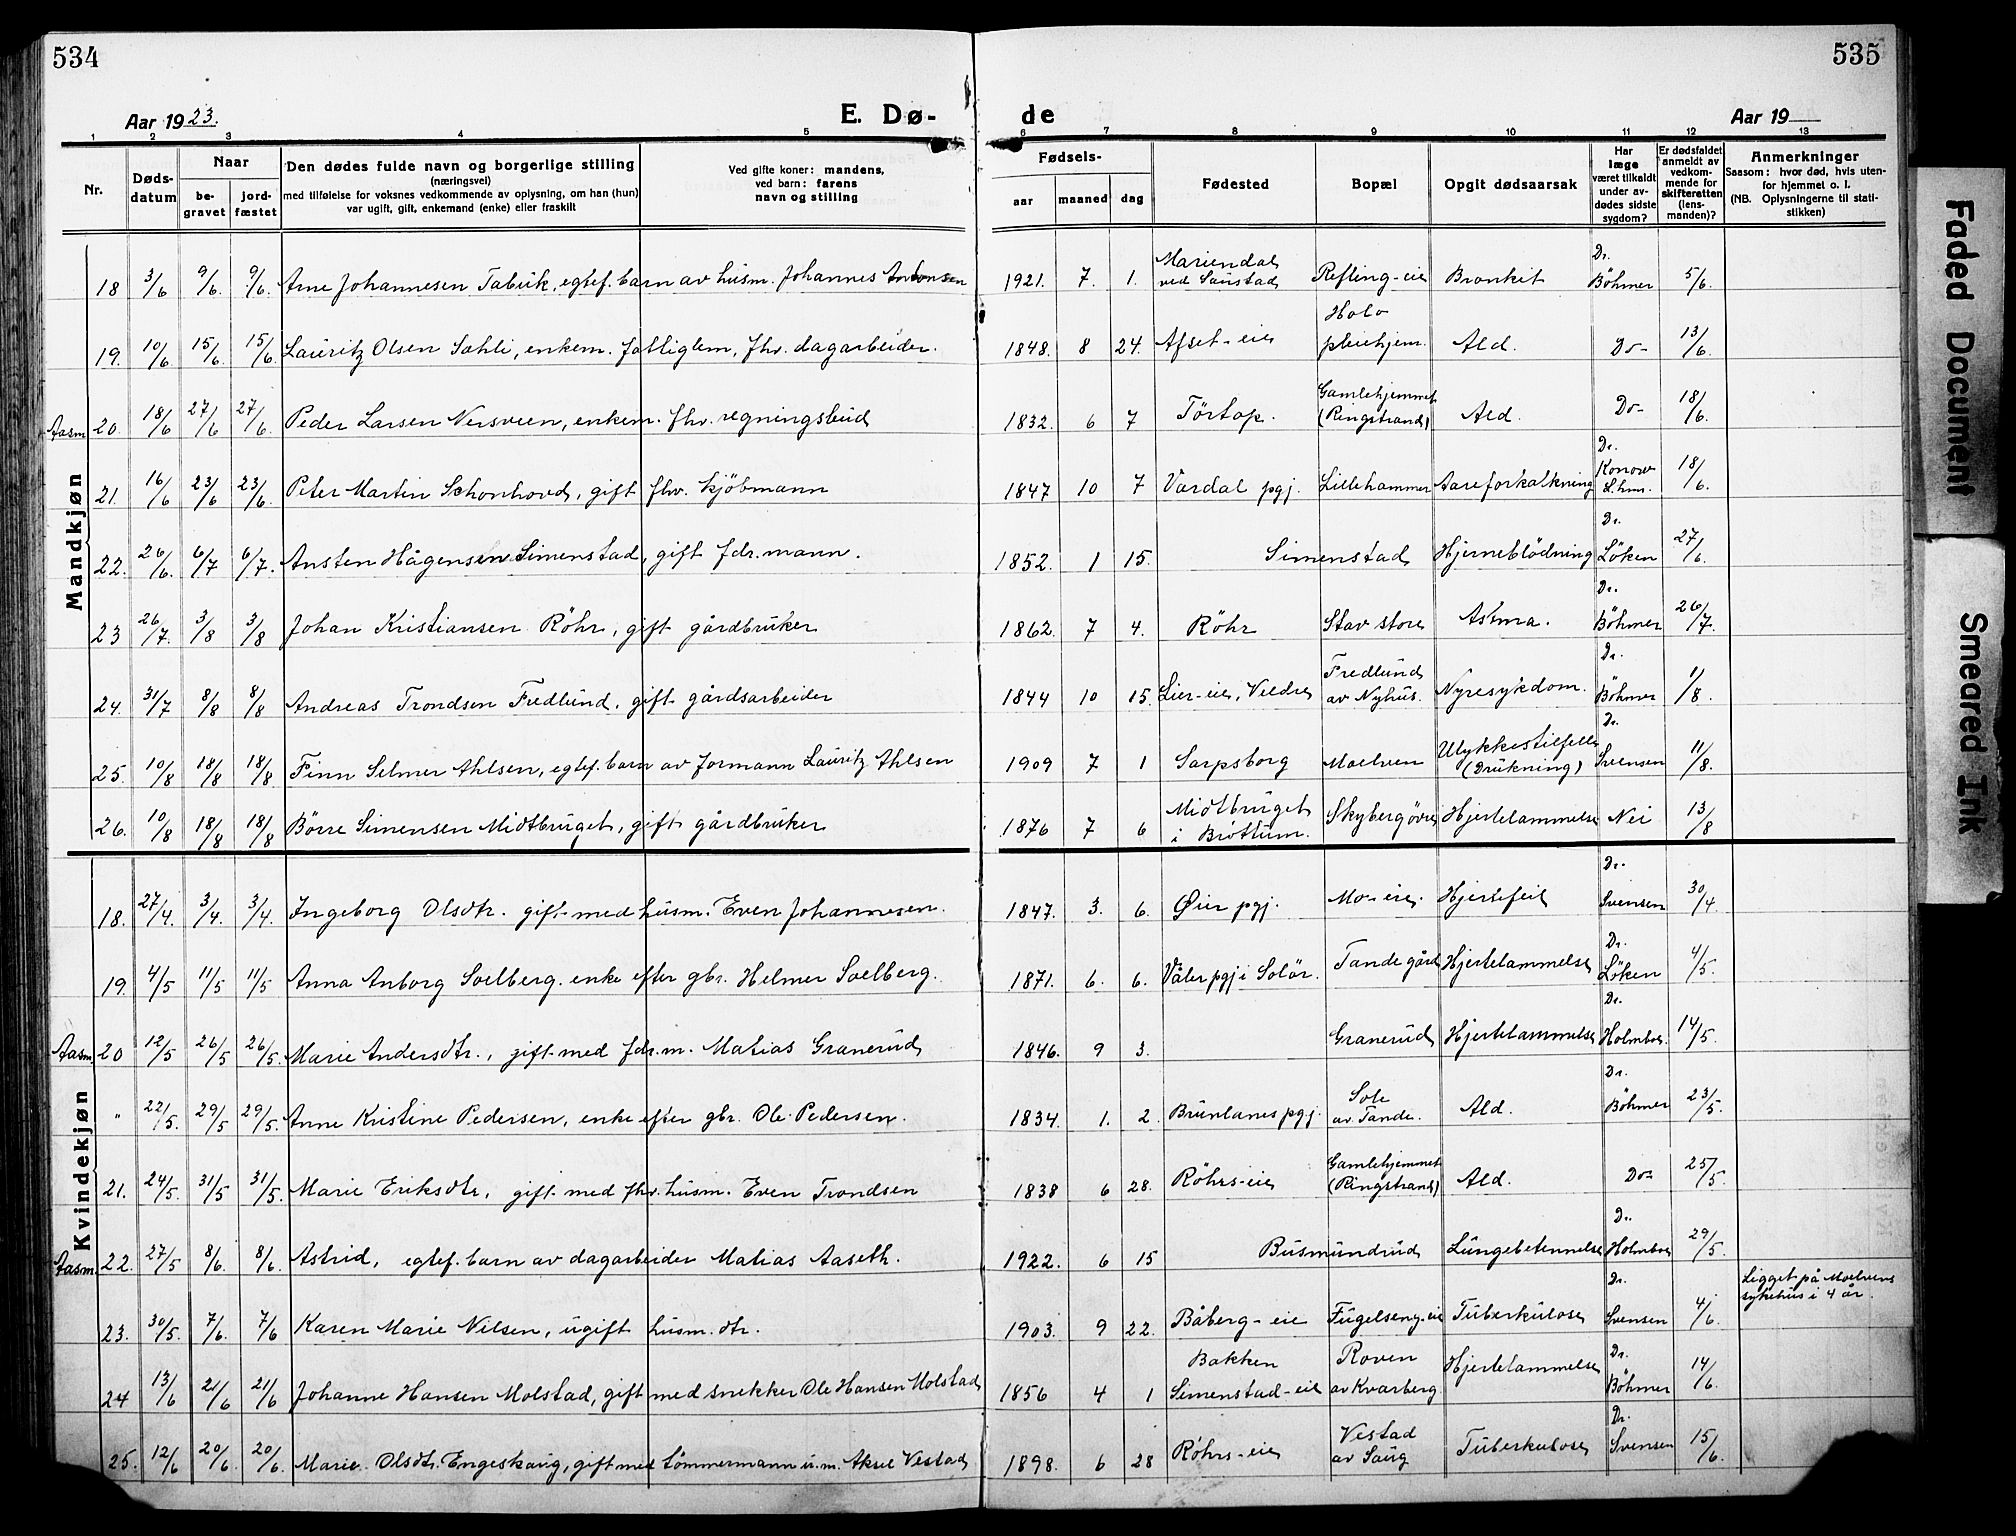 534
535
Aar 1923.
E. Dø-
de
Aar 19
1 2 3 4 5 6 7 8 9 10 11 12 13
Nr.
Døds-
datum
Naar
be-
gravet
jord-
fæstet
Den dødes fulde navn og borgerlige stilling
(næringsvei)
med tilføielse for voksnes vedkommende av oplysning, om han (hun)
var ugift, gift, enkemand (enke) eller fraskilt
Ved gifte koner: mandens,
ved barn: farens
navn og stilling
Fødsels-
aar
maaned
dag
Fødested
Bopæl
Opgit dødsaarsak
Har
læge
været tilkaldt
under av-
dødes sidste
sygdom?
Er dødsfaldet
anmeldt av
vedkom-
mende for
skifteretten
(lens-
manden)?
Anmerkninger
Saasom: hvor død, hvis uten-
for hjemmet o. l.
(NB. Oplysningerne til stati-
stikken)
Mandkjøn
18 3/6 9/6. 9/6. Arne Johannesen Tabuk, egtef. barn av husm. Johannes Antonsen 1921. 7. 1. Mariendal ved Saustad Refling-eie Bronkit Dr. Böhmer 5/6.
19. 10/6. 15/6. 15/6. Lauritz Olsen Sahli, enkem. fattiglem, fhv. dagarbeider. 1848. 8 24. Afset-eie Holo pleiehjem. Ald. Do- 13/6.
Aasm. 20. 18/6 27/6 27/6. Peder Larsen Nersveen, enkem. fhv. regningsbud 1832. 6 7 Törtop. Gamlehjemmet (Ringstrand) Ald. Do- 18/6.
21. 16/6 23/6 23/6. Peter Martin Schonhovd, gift fhv. kjöbmann 1847 10 7 Vardal pgj. Lillehammer Aareforkalkning Dr. Konow L.hmr. 18/6.
22. 26/6. 6/7 6/7. Ansten Hågensen Simenstad, gift fdr.mann. 1852. 1 15. Simenstad Hjerneblödning Dr. Löken 27/6.
23 26/7. 3/8 3/8 Johan Kristiansen Röhr, gift gårdbruker 1862. 7 4. Röhr Stav store Astma. Dr. Böhmer 26/7.
24. 31/7 8/8 8/8 Andreas Trondsen Fredlund, gift gårdsarbeider 1844 10 15. Lier-eie, Veldre Fredlund av Nyhus. Nyresykdom. Dr. Böhmer 1/8.
25. 10/8 18/8 18/8 Finn Selmer Ahlsen, egtef. barn av formann Lauritz Ahlsen 1909 7 1 Sarpsborg Moelven Ulykkestilfelle (Drukning) Dr. Svensen 11/8.
26. 10/8 18/8 18/8 Börre Simensen Midtbruget, gift gårdbruker 1876 7 6 Midtbruget i Bröttum. Skyberg övre Hjertelammelse Nei 13/8
Kvindekjøn
18. 27/4. 3/4. 3/4. Ingeborg Olsdtr. gift med husm. Even Johannesen. 1847. 3. 6. Øier pgj. Mo-eie. Hjertefeil Dr. Svensen 30/4
19. 4/5 11/5 11/5 Anna Anborg Solberg. enke efter gbr. Helmer Solberg. 1871. 6. 6. Våler pgj i Solör. Tande gård Hjertelammelse Dr. Löken 4/5.
Aasm. 20 12/5 26/5 26/5. Marie Andersdtr., gift med fdr.m. Matias Granerud 1846. 9 3. Granerud Hjertelammelse Dr. Holmboe. 14/5.
" 22/5. 29/5 29/5. Anne Kristine Pedersen, enke efter gbr. Ole Pedersen. 1834. 1. 2. Brunlanes pgj. Sole av Tande. Ald. Dr. Böhmer 23/5.
21. 24/5. 31/5 31/5. Marie Eriksdtr, gift med fhv. husm. Even Trondsen 1838 6 28. Röhrs-eie Gamlehjemmet (Ringstrand) Ald. Do- 25/5.
Aasm. 22. 27/5 8/6. 8/6. Astrid, egtef. barn av dagarbeider Matias Aaseth. 1922. 6 15 Busmundrud Lungebetennelse Dr. Holmboe 29/5.
23. 30/5. 7/6. 7/6 Karen Marie Nilsen, ugift husm. dtr. 1903. 9 22. Båberg-eie Fugelseng-eie Tuberkulose Dr. Svensen 4/6 Ligget på Moelvens sykehus i 4 år.
24 13/6 21/6 21/6 Johanne Hansen Molstad, gift med snekker Ole Hansen Molstad 1856 4 1 Bakken Simenstad-eie Roven av Kvarberg. Hjertelammelse Dr. Böhmer 14/6.
25. 12/6 20/6. 20/6. Marie Olsdtr. Engeskaug, gift med tömmermann u.m. Aksel Vestad 1898. 6 28 Röhrs-eie Vestad av Saug Tuberkulose Dr. Svensen 15/6.
Faded Document
Smeared Ink